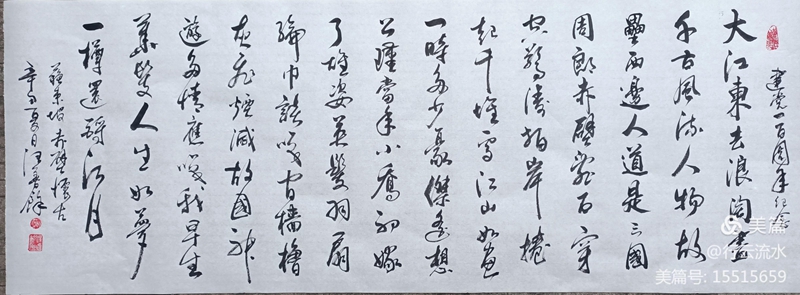 建党一百周年纪念
大江東去浪淘盡
千古風流人物故
壘西邊人道是三國
周郎赤壁亂石穿
空驚濤拍岸捲
起千堆雪江山如畫
一時多少豪傑遙想
公瑾當年小喬初嫁
了雄姿英發羽扇
綸巾談笑间檣櫓
灰飛煙滅故國神
遊多情應笑我早生
華髮人生如夢
一樽還酹江月
蘇東坡赤壁懷古
辛丑夏日汪
美篇
@行云流水
美篇号: 15515659